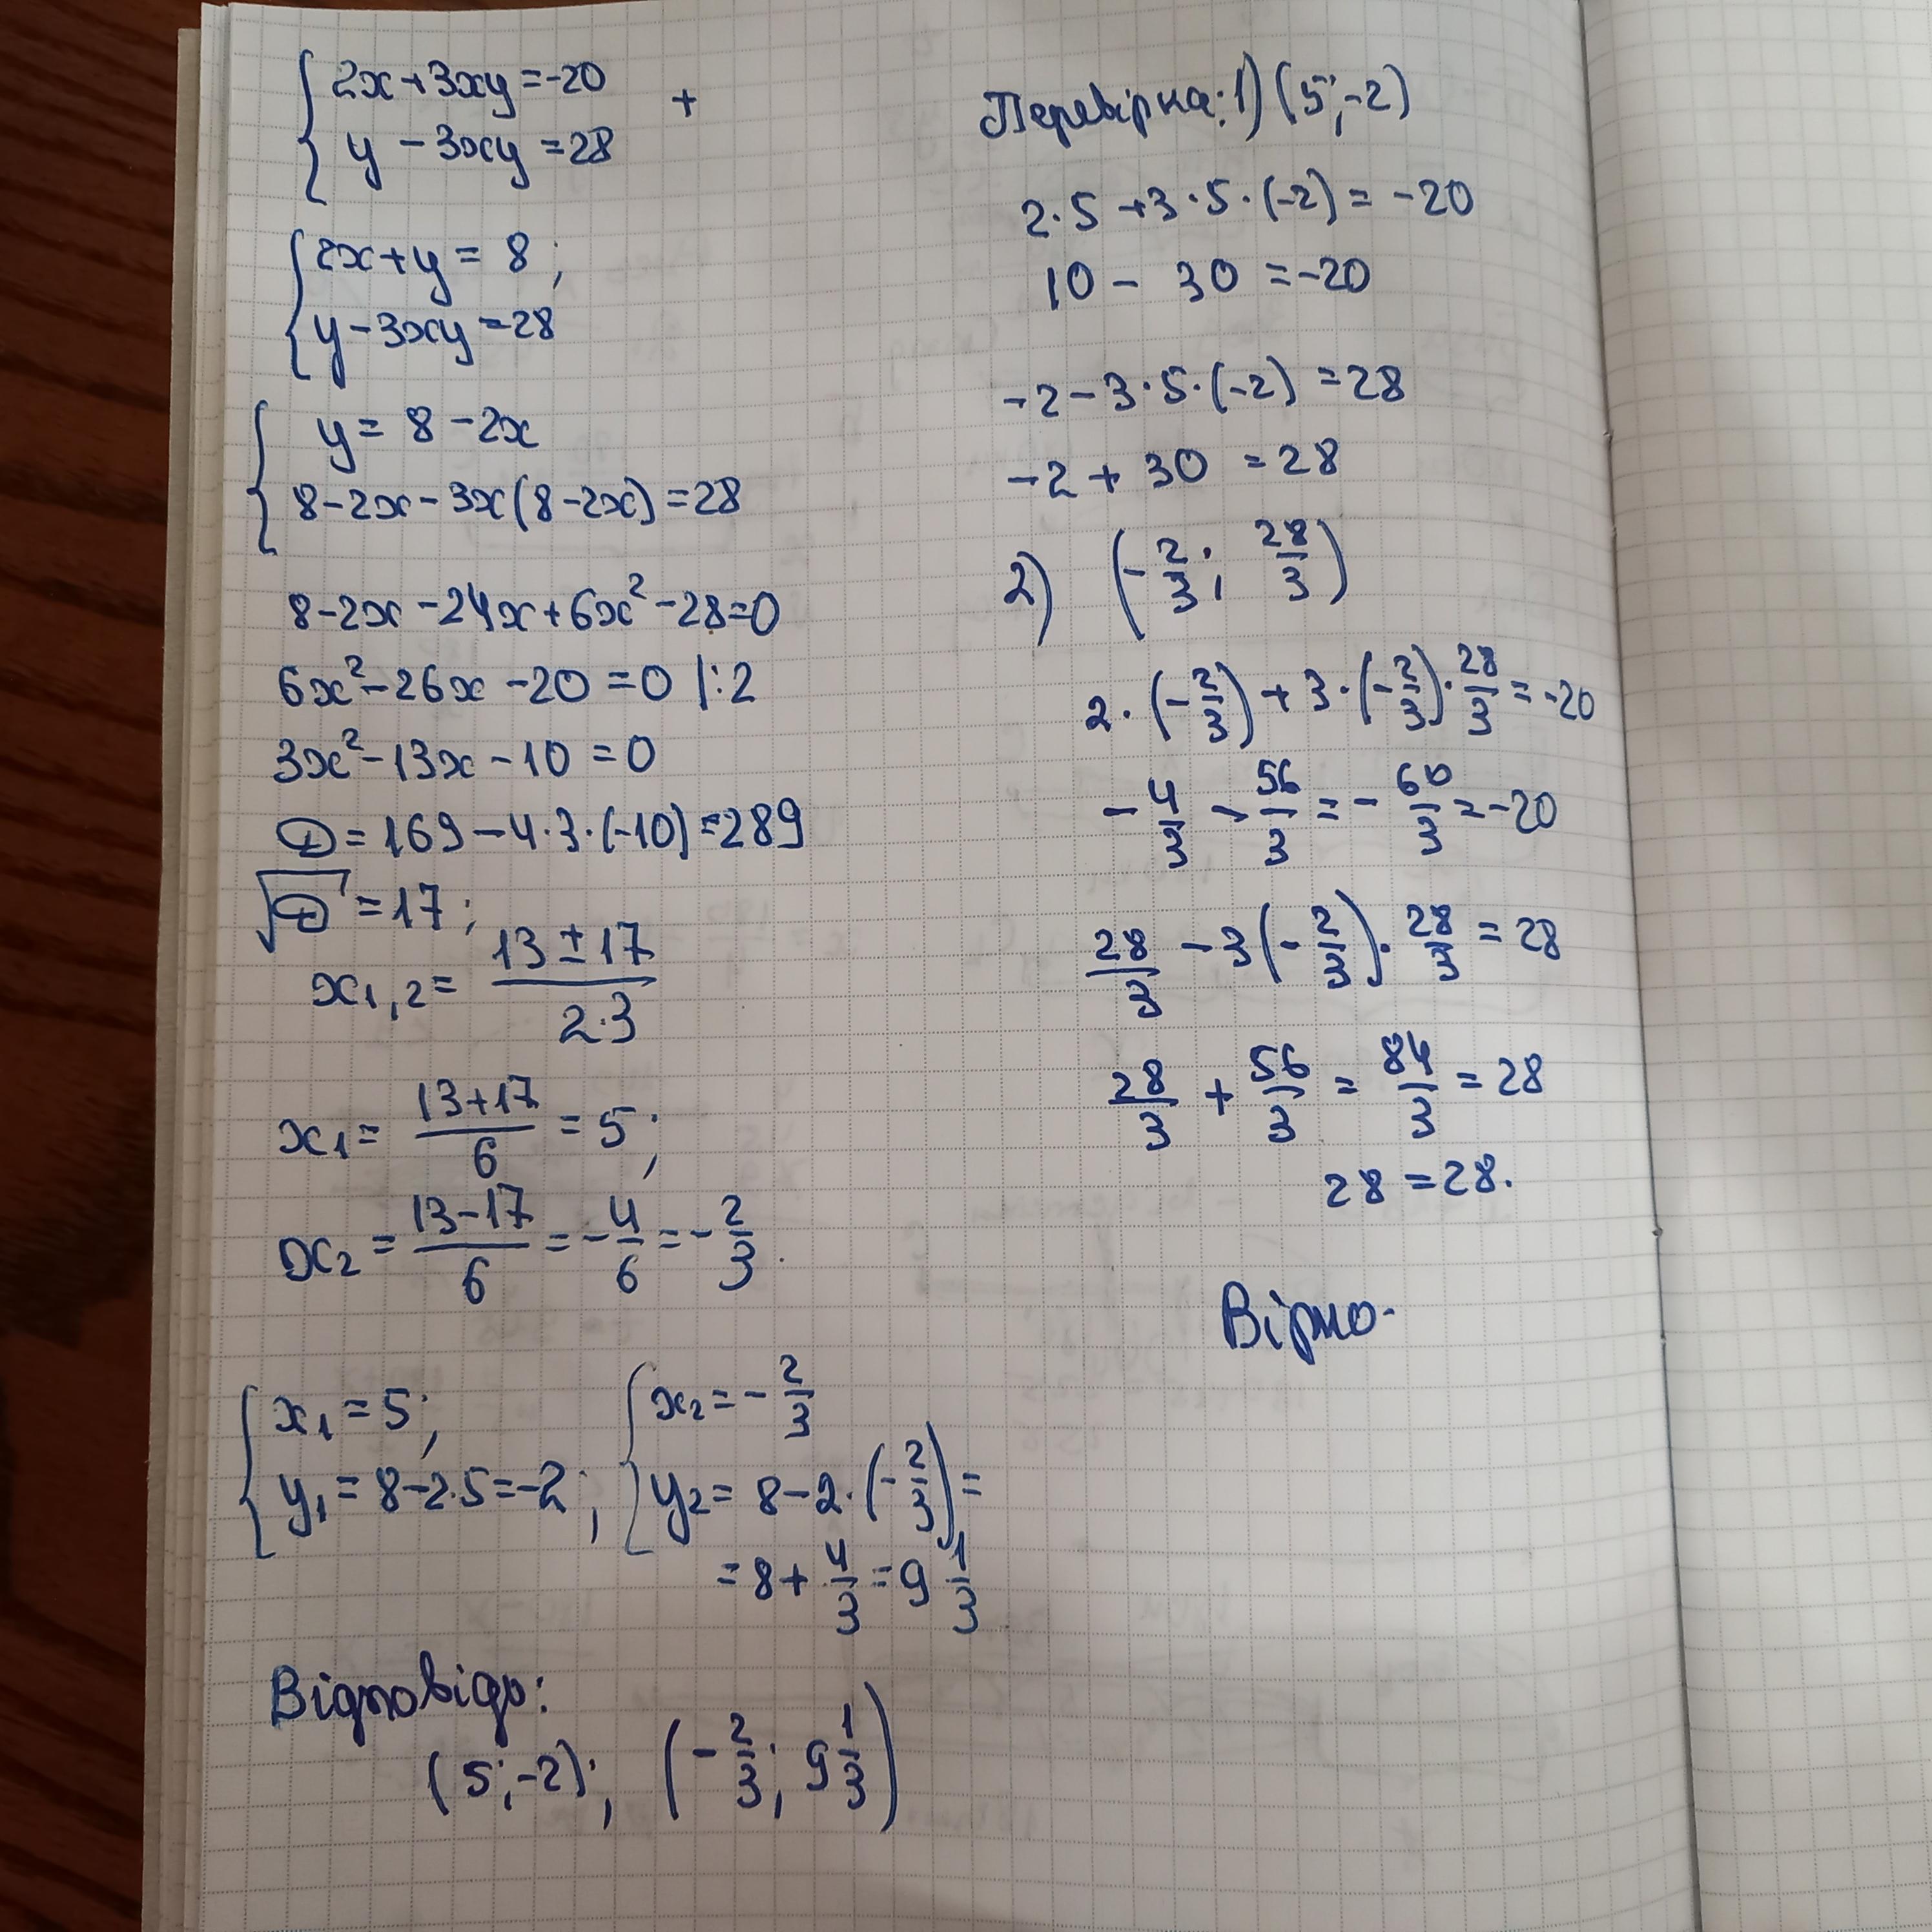 { 2x+3xy=-20 +
{ y-3xy=28
{ 2x+y=8;
{ y-3xy=28
{ y=8-2x
{ 8-2x-3x(8-2x)=28
8-2x-24x+6x²-28=0
6x²-26x-20=0 |:2
3x²-13x-10=0
D=169-4·3·(-10)=289
√D=17;
x₁,₂= (13±17)/(2·3)
x₁= (13+17)/6 =5;
x₂= (13-17)/6 =-4/6=-2/3.
{ x₁=5; { x₂=-2/3
{ y₁=8-2·5=-2; { y₂=8-2·(-2/3)=
=8+4/3=9 1/3
Відповідь:
(5;-2); (-2/3; 9 1/3)
Перевірка: 1) (5;-2)
2·5+3·5·(-2)=-20
10-30=-20
-2-3·5·(-2)=28
-2+30=28
2) (-2/3; 28/3)
2·(-2/3)+3·(-2/3)·28/3=-20
-4/3-56/3=-60/3=-20
28/3-3(-2/3)·28/3=28
28/3+56/3=84/3=28
28=28.
Вірно.